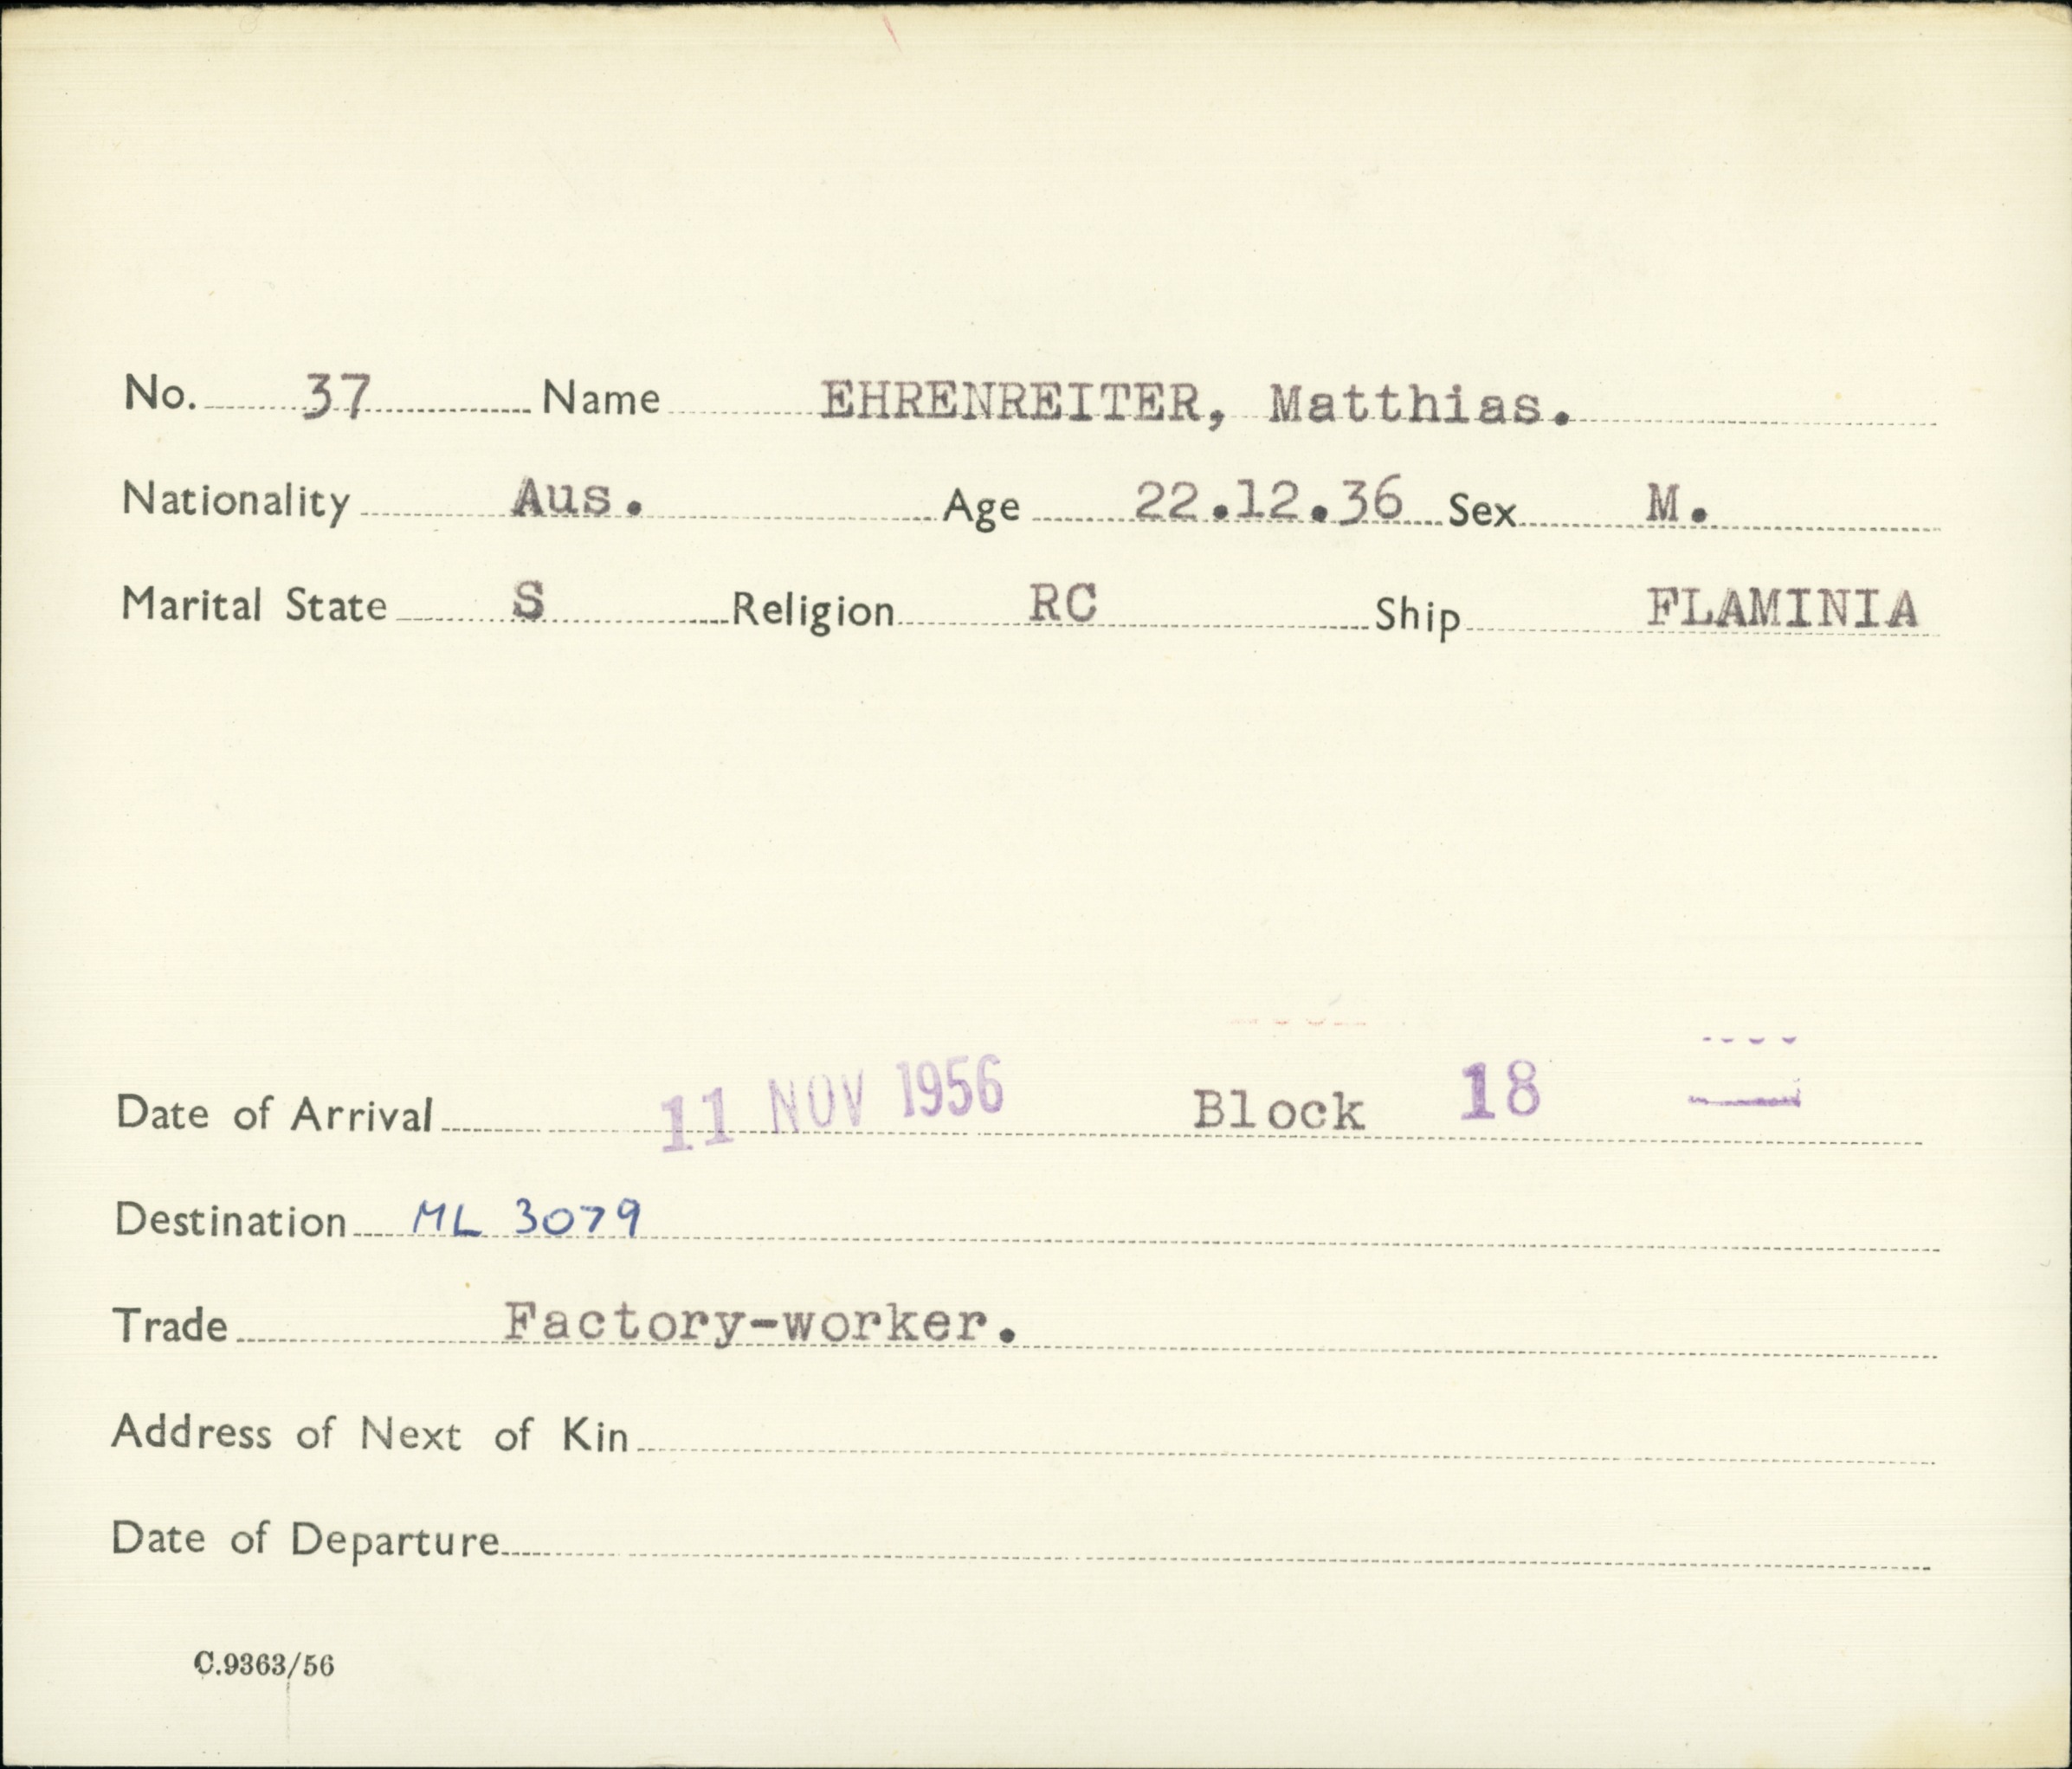 No. 37 Name EHRENREITER, Matthias.
Nationality Aus. Age 22.12.36 Sex M.
Marital State S Religion RC Ship FLAMINIA
Date of Arrival 11 NOV 1956 Block 18
Destination ML 3079
Trade Factory-worker.
Address of Next of Kin
Date of Departure
C.9363/56